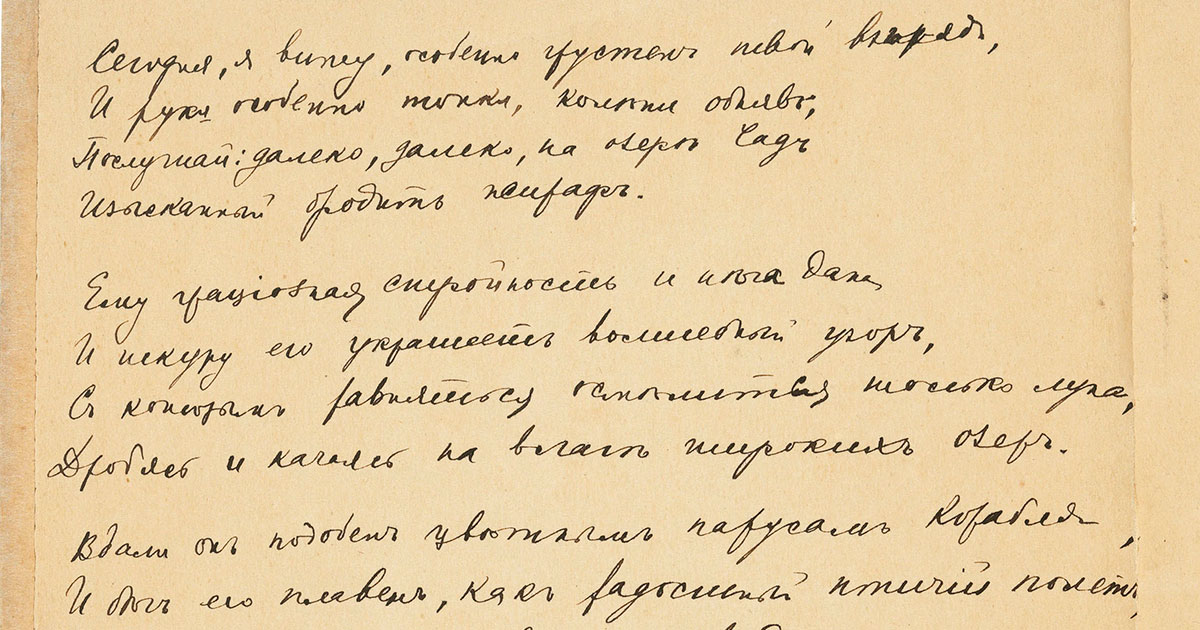 Сегодня, я вижу, особенно грустенъ твой взглядъ,
И руки особенно тонки, колѣни обнявъ;
Послушай: далеко, далеко, на озерѣ Чадъ
Изысканный бродитъ жирафъ.
Ему граціозная стройность и нѣга дана
И шкуру его украшаетъ волшебный узоръ,
Съ которымъ равняться осмѣлится только луна,
Дробясь и качаясь на влагѣ широкихъ озеръ.
Вдали онъ подобенъ цвѣтнымъ парусамъ корабля,
И бѣгъ его плавенъ, какъ радостный птичій полетъ,